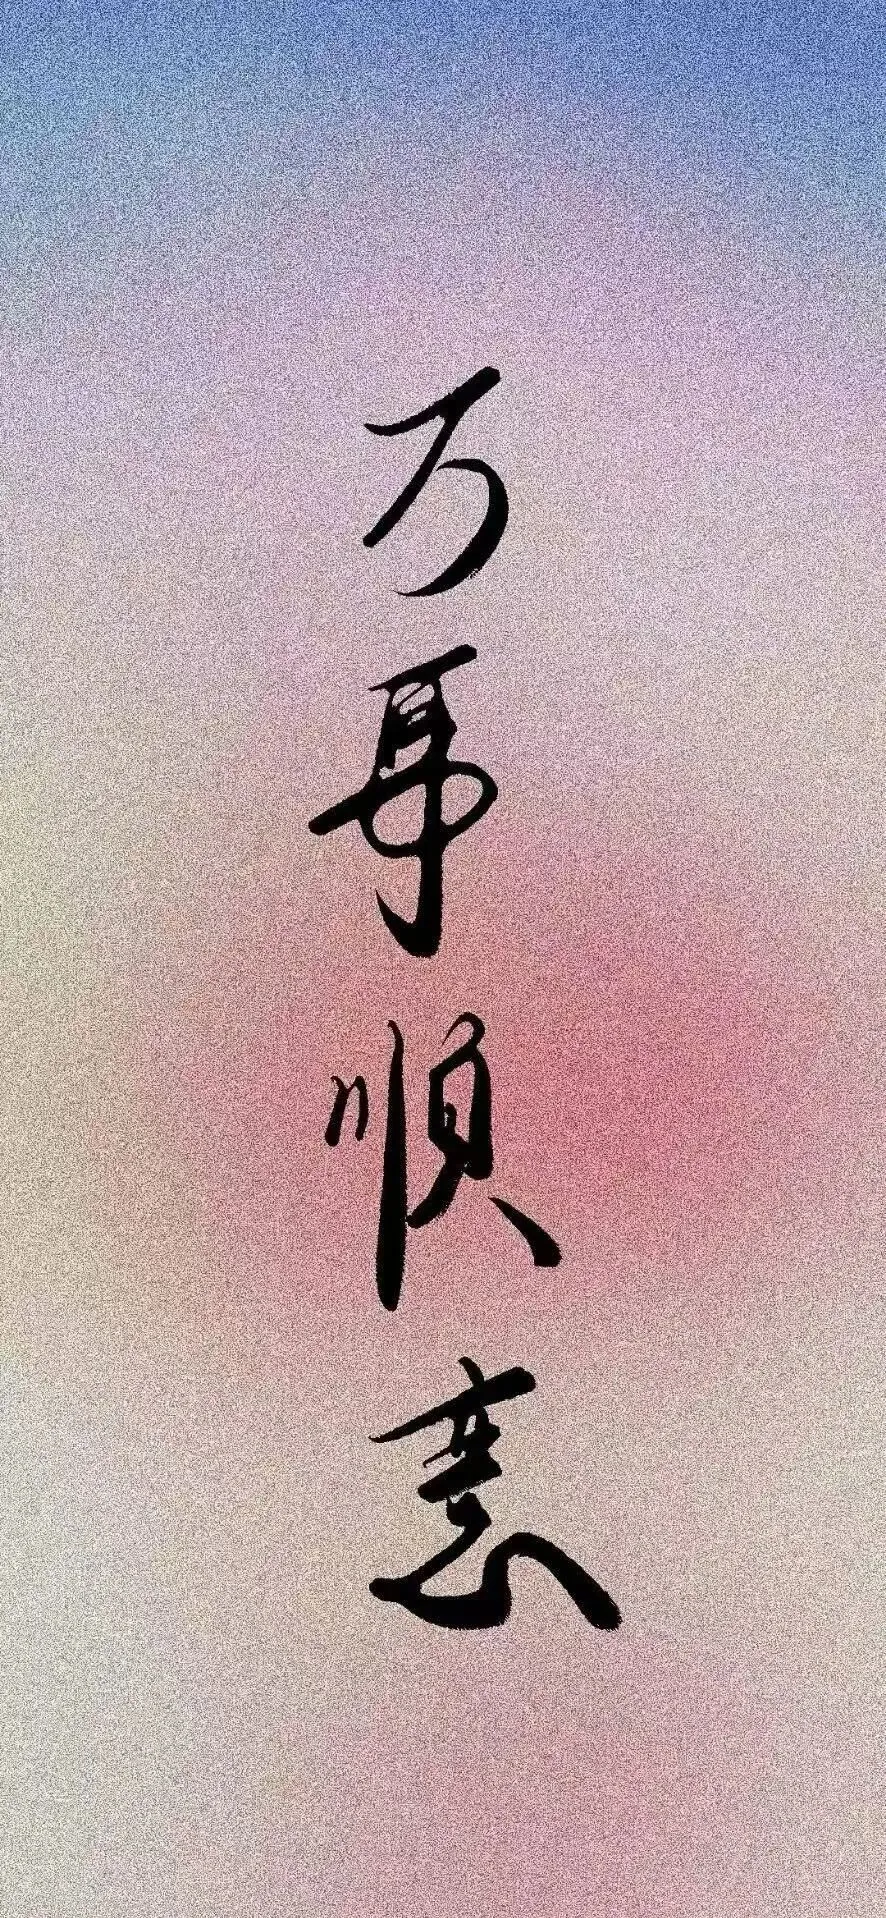 万事顺意